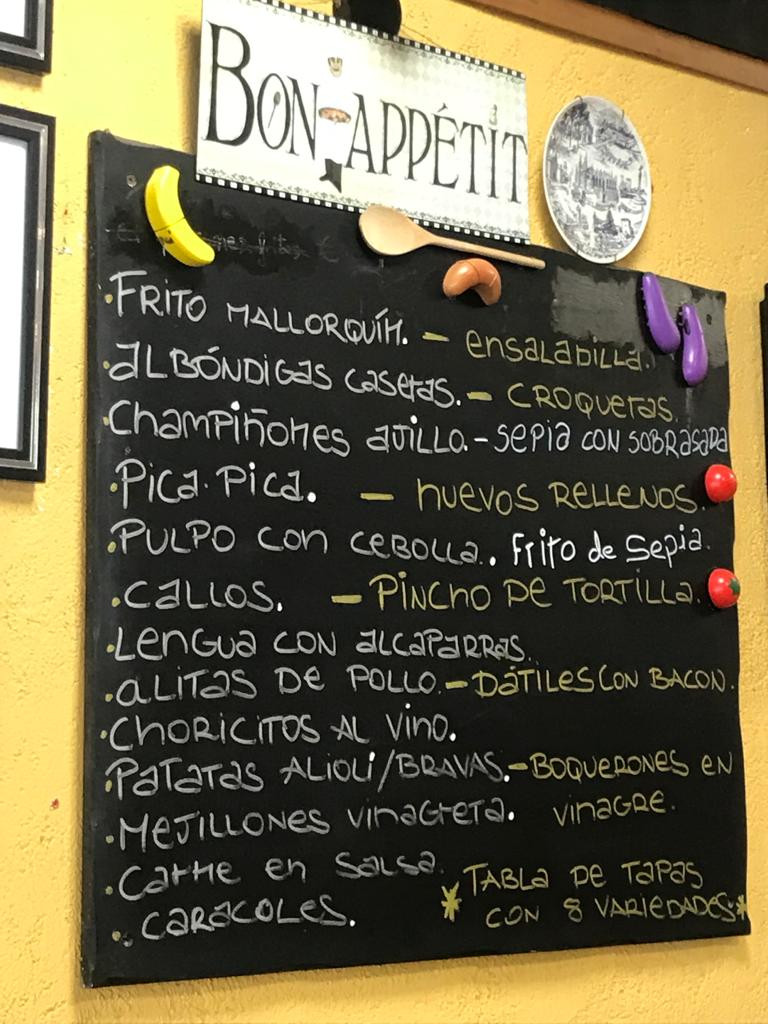 BON APPÉTIT
·FRITO MALLORQUÍN. - ENSALADILLA.
·ALBÓNDIGAS CASERAS. - CROQUETAS.
·CHAMPIÑONES AJILLO. - SEPIA CON SOBRASADA
·PICA PICA. - HUEVOS RELLENOS.
·PULPO CON CEBOLLA. Frito de Sepia.
·CALLOS. - PINCHO DE TORTILLA.
·LENGUA CON ALCAPARRAS.
·ALITAS DE POLLO. - DÁTILES CON BACON.
·CHORICITOS AL VINO.
·PATATAS ALIOLI/BRAVAS. - BOQUERONES EN
·MEJILLONES VINAGRETA. VINAGRE.
·CARNE EN SALSA. *TABLA DE TAPAS
·CARACOLES. CON 8 VARIEDADES*